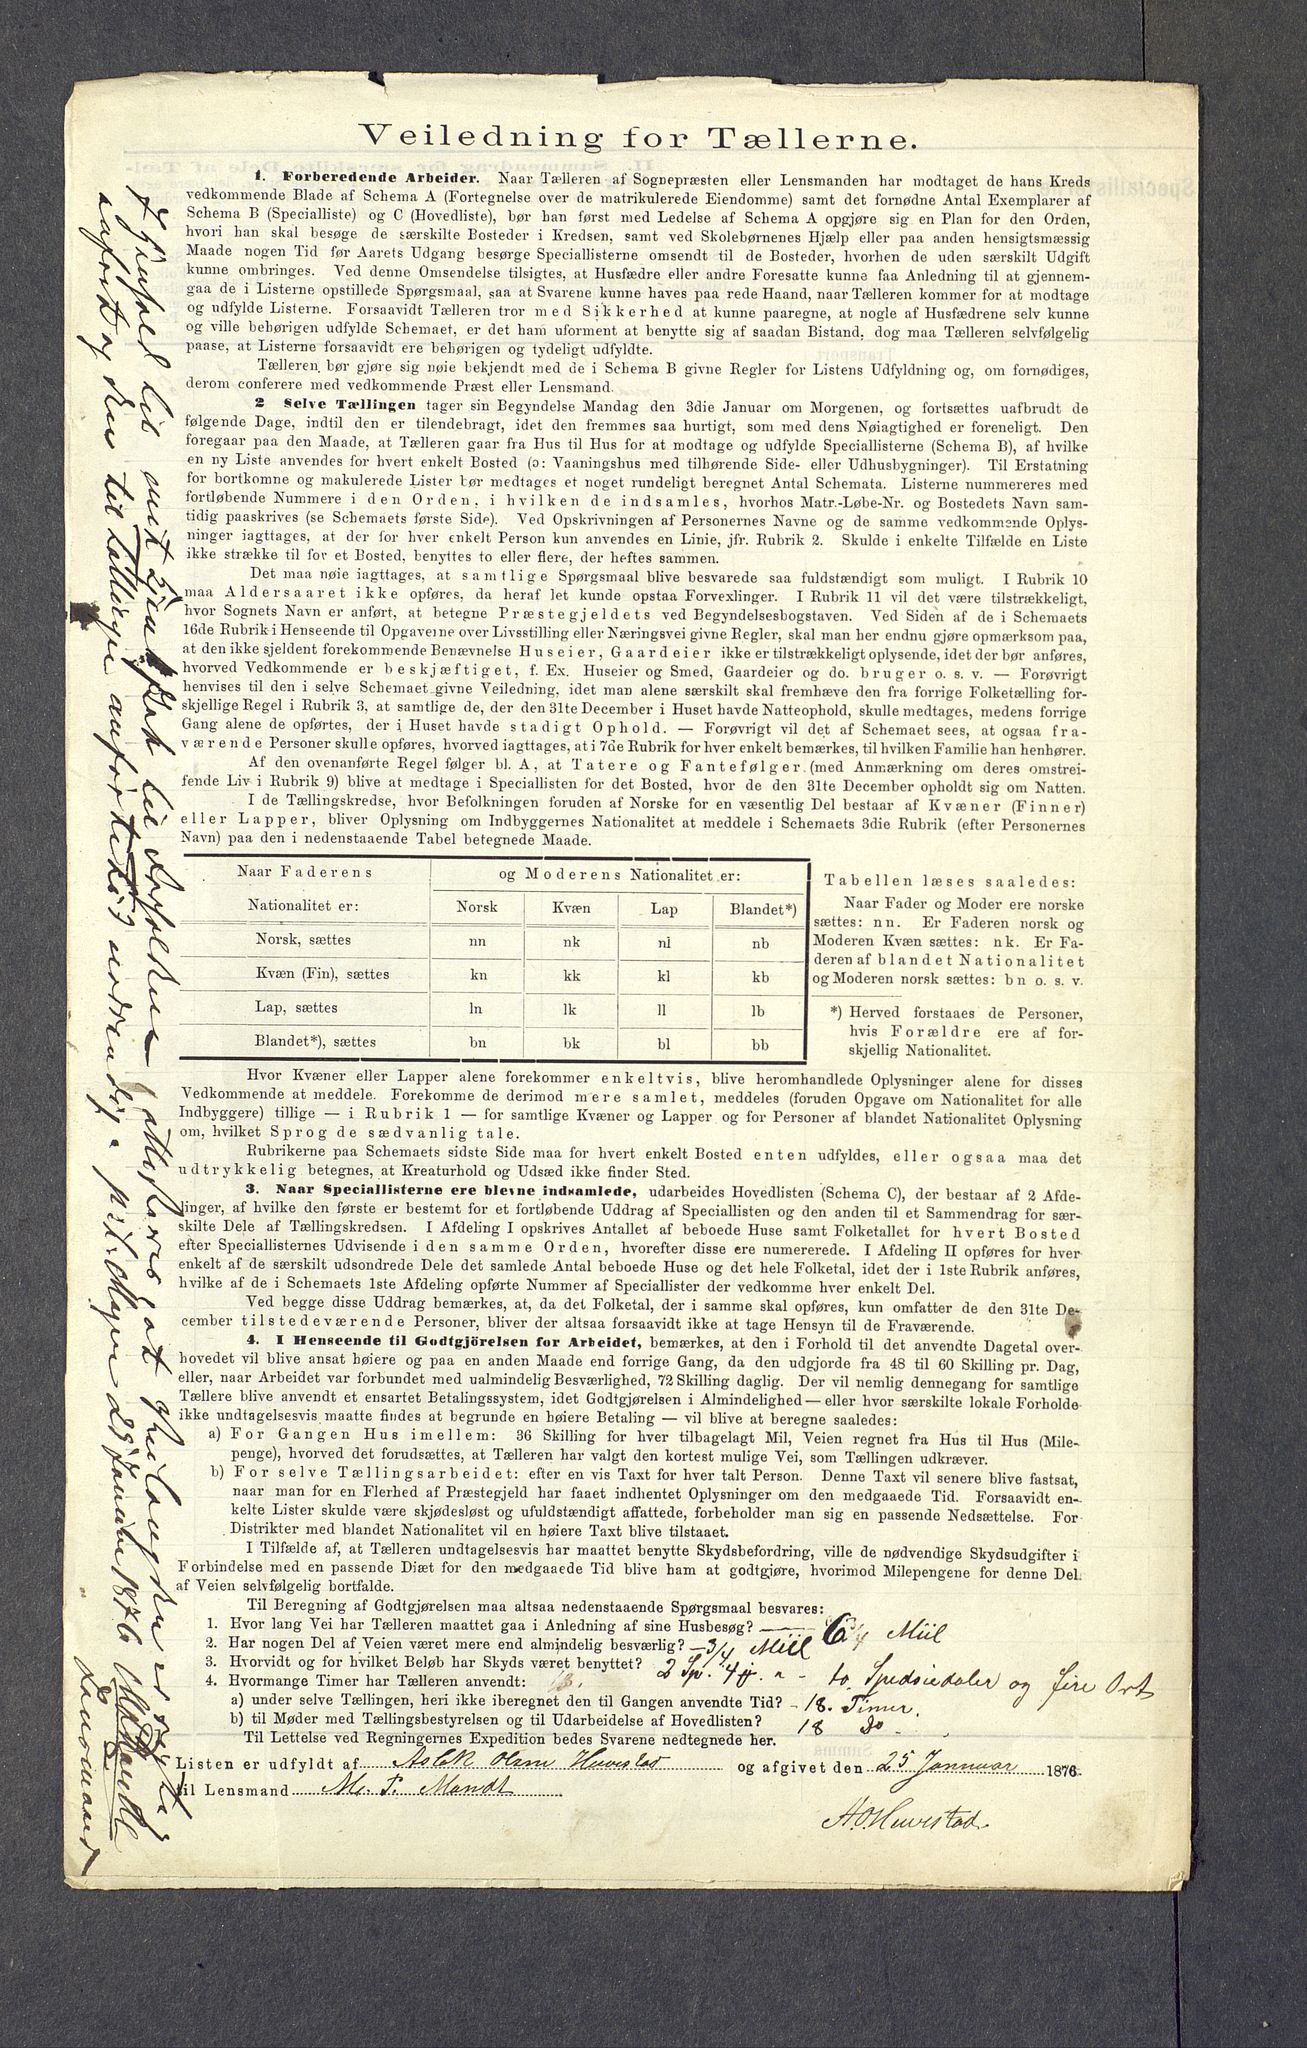 Veiledning for Tællerne.
1. Forberedende Arbeider. Naar Tælleren af Sognepræsten eller Lensmanden har modtaget de hans Kreds
vedkommende Blade af Schema A (Fortegnelse over de matrikulerede Eiendomme) samt det fornødne Antal Exemplarer af
Schema B (Specialliste) og C (Hovedliste), bør han først med Ledelse af Schema A opgjøre sig en Plan for den Orden,
hvori han skal besøge de særskilte Bosteder i Kredsen, samt ved Skolebørnenes Hjælp eller paa anden hensigtsmæssig
Maade nogen Tid før Aarets Udgang besørge Speciallisterne omsendt til de Bosteder, hvorhen de uden særskilt Udgift
kunne ombringes. Ved denne Omsendelse tilsigtes, at Husfædre eller andre Foresatte kunne faa Anledning til at gjennem-
gaa de i Listerne opstillede Spørgsmaal, saa at Svarene kunne haves paa rede Haand, naar Tælleren kommer for at modtage
og udfylde Listerne. Forsaavidt Tælleren tror med Sikkerhed at kunne paaregne, at nogle af Husfædrene selv kunne
og ville behørigen udfylde Schemaet, er det ham uforment at benytte sig af saadan Bistand, dog maa Tælleren selvfølgelig
paase, at Listerne forsaavidt ere behørigen og tydeligt udfyldte.
Tælleren bør gjøre sig nøie bekjendt med de i Schema B givne Regler for Listens Udfyldning og, om fornødiges,
derom conferere med vedkommende Præst eller Lensmand.
2 Selve Tællingen tager sin Begyndelse Mandag den 3die Januar om Morgenen, og fortsættes uafbrudt de
følgende Dage, indtil den er tilendebragt, idet den fremmes saa hurtigt, som med dens Nøiagtighed er foreneligt. Den
foregaar paa den Maade, at Tælleren gaar fra Hus til Hus for at modtage og udfylde Speciallisterne (Schema B), af hvilke
en ny Liste anvendes for hvert enkelt Bosted (ɔ: Vaaningshus med tilhørende Side- eller Udhusbygninger). Til Erstatning
for bortkomne og makulerede Lister bør medtages et noget rundeligt beregnet Antal Schemata. Listerne nummereres med
fortløbende Nummere i den Orden, i hvilken de indsamles, hvorhos Matr.-Løbe-Nr. og Bostedets Navn sam-
tidig paaskrives (se Schemaets første Side). Ved Opskrivningen af Personernes Navne og de samme vedkommende Oplys-
ninger iagttages, at der for hver enkelt Person kun anvendes en Linie, jfr. Rubrik 2. Skulde i enkelte Tilfælde en Liste
ikke strække til for et Bosted, benyttes to eller flere, der heftes sammen.
Det maa nøie iagttages, at samtlige Spørgsmaal blive besvarede saa fuldstændigt som muligt. I Rubrik 10
maa Aldersaaret ikke opføres, da heraf let kunde opstaa Forvexlinger. I Rubrik 11 vil det være tilstrækkeligt,
hvor Sognets Navn er anført, at betegne Præstegjeldets ved Begyndelsesbogstaven. Ved Siden af de i Schemaets
16de Rubrik i Henseende til Opgaverne over Livsstilling eller Næringsvei givne Regler, skal man her endnu gjøre opmærksom paa,
at den ikke sjeldent forekommende Benævnelse Huseier, Gaardeier ikke er tilstrækkeligt oplysende, idet der bør anføres,
hvorved Vedkommende er beskjæftiget, f. Ex. Huseier og Smed, Gaardeier og do. bruger o. s. v. — Forøvrigt
henvises til den i selve Schemaet givne Veiledning, idet man alene særskilt skal fremhæve den fra forrige Folketælling for-
skjellige Regel i Rubrik 3, at samtlige de, der den 31te December i Huset havde Natteophold, skulle medtages, medens forrige
Gang alene de opførtes, der i Huset havde stadigt Ophold. — Forøvrigt vil det af Schemaet sees, at ogsaa fra-
værende Personer skulle opføres, hvorved iagttages, at i 7de Rubrik for hver enkelt bemærkes, til hvilken Familie han henhører.
Af den ovenanførte Regel følger bl. A, at Tatere og Fantefølger (med Anmærkning om deres omstrei-
fende Liv i Rubrik 9) blive at medtage i Speciallisten for det Bosted, hvor de den 31te December opholdt sig om Natten.
I de Tællingskredse, hvor Befolkningen foruden af Norske for en væsentlig Del bestaar af Kvæner (Finner)
eller Lapper, bliver Oplysning om Indbyggernes Nationalitet at meddele i Schemaets 3die Rubrik (efter Personernes
Navn) paa den i nedenstaaende Tabel betegnede Maade.
Naar Faderens og Moderens Nationalitet er:
Nationalitet er: Norsk Kvæn Lap Blandet*)
Norsk, sættes nn nk nl nb
Kvæn (Fin), sættes kn kk kl kb
Lap, sættes ln lk ll lb
Blandet*), sættes bn bk bl bb
Tabellen læses saaledes:
Naar Fader og Moder ere norske
sættes: nn. Er Faderen norsk og
Moderen Kvæn sættes: nk. Er Fa-
deren af blandet Nationalitet
og Moderen norsk sættes: bn o. s. v.
*) Herved forstaaes de Personer,
hvis Forældre ere af for-
skjellig Nationalitet.
Hvor Kvæner eller Lapper alene forekommer enkeltvis, blive heromhandlede Oplysninger alene for disses
Vedkommende at meddele. Forekomme de derimod mere samlet, meddeles (foruden Opgave om Nationalitet for alle
Indbyggere) tillige — i Rubrik 1 — for samtlige Kvæner og Lapper og for Personer af blandet Nationalitet Oplysning
om, hvilket Sprog de sædvanlig tale.
Rubrikerne paa Schemaets sidste Side maa for hvert enkelt Bosted enten udfyldes, eller ogsaa maa det
udtrykkelig betegnes, at Kreaturhold og Udsæd ikke finder Sted.
3. Naar Speciallisterne ere blevne indsamlede, udarbeides Hovedlisten (Schema C), der bestaar af 2 Afde-
linger, af hvilke den første er bestemt for et fortløbende Uddrag af Speciallisten og den anden til et Sammendrag for sær-
skilte Dele af Tællingskredsen. I Afdeling I opskrives Antallet af beboede Huse samt Folketallet for hvert Bosted
efter Speciallisternes Udvisende i den samme Orden, hvorefter disse ere numererede. I Afdeling II opføres for hver
enkelt af de særskilt udsondrede Dele det samlede Antal beboede Huse og det hele Folketal, idet der i 1ste Rubrik anføres,
hvilke af de i Schemaets 1ste Afdeling opførte Nummer af Speciallister der vedkomme hver enkelt Del.
Ved begge disse Uddrag bemærkes, at, da det Folketal, der i samme skal opføres, kun omfatter de den 31te De-
cember tilstedeværende Personer, bliver der altsaa forsaavidt ikke at tage Hensyn til de Fraværende.
4. I Henseende til Godtgjörelsen for Arbeidet, bemærkes, at den i Forhold til det anvendte Dagetal over-
hovedet vil blive ansat høiere og paa en anden Maade end forrige Gang, da den udgjorde fra 48 til 60 Skilling pr. Dag,
eller, naar Arbeidet var forbundet med ualmindelig Besværlighed, 72 Skilling daglig. Der vil nemlig dennegang for samtlige
Tællere blive anvendt et ensartet Betalingssystem, idet Godtgjørelsen i Almindelighed — eller hvor særskilte lokale Forholde
ikke undtagelsesvis maatte findes at begrunde en høiere Betaling — vil blive at beregne saaledes:
a) For Gangen Hus imellem: 36 Skilling for hver tilbagelagt Mil, Veien regnet fra Hus til Hus (Mile-
penge), hvorved det forudsættes, at Tælleren har valgt den kortest mulige Vei, som Tællingen udkræver.
b) For selve Tællingsarbeidet: efter en vis Taxt for hver talt Person. Denne Taxt vil senere blive fastsat,
naar man for en Flerhed af Præstegjeld har faaet indhentet Oplysninger om den medgaaede Tid. Forsaavidt en-
kelte Lister skulde være skjødesløst og ufuldstændigt affattede, forbeholder man sig en passende Nedsættelse. For
Distrikter med blandet Nationalitet vil en høiere Taxt blive tilstaaet.
I Tilfælde af, at Tælleren undtagelsesvis har maattet benytte Skydsbefordring, ville de nødvendige Skydsudgifter i
Forbindelse med en passende Diæt for den medgaaede Tid blive ham at godtgjøre, hvorimod Milepengene for denne Del
af Veien selvfølgelig bortfalde.
Til Beregning af Godtgjørelsen maa altsaa nedenstaaende Spørgsmaal besvares:
1. Hvor lang Vei har Tælleren maattet gaa i Anledning af sine Husbesøg? Miil
2. Har nogen Del af Veien været mere end almindelig besværlig? 3/4 Miil
3. Hvorvidt og for hvilket Beløb har Skyds været benyttet? 2 Sp. to Spedsiedaler og fire Ort
4. Hvormange Timer har Tælleren anvendt:
a) under selve Tællingen, heri ikke iberegnet den til Gangen anvendte Tid? 18. Timer.
b) til Møder med Tællingsbestyrelsen og til Udarbeidelse af Hovedlisten? 18 Do
Til Lettelse ved Regningernes Expedition bedes Svarene nedtegnede her.
Listen er udfyldt af Aslak Olsen Huvestad og afgivet den 25 Januar 1876
til Lensmand M. T. Mandt
A. O. Huvestad
I Henhold til mit til
attesteres at
opført og den til anførte nødvendig.
Januar 1876
Lensmand